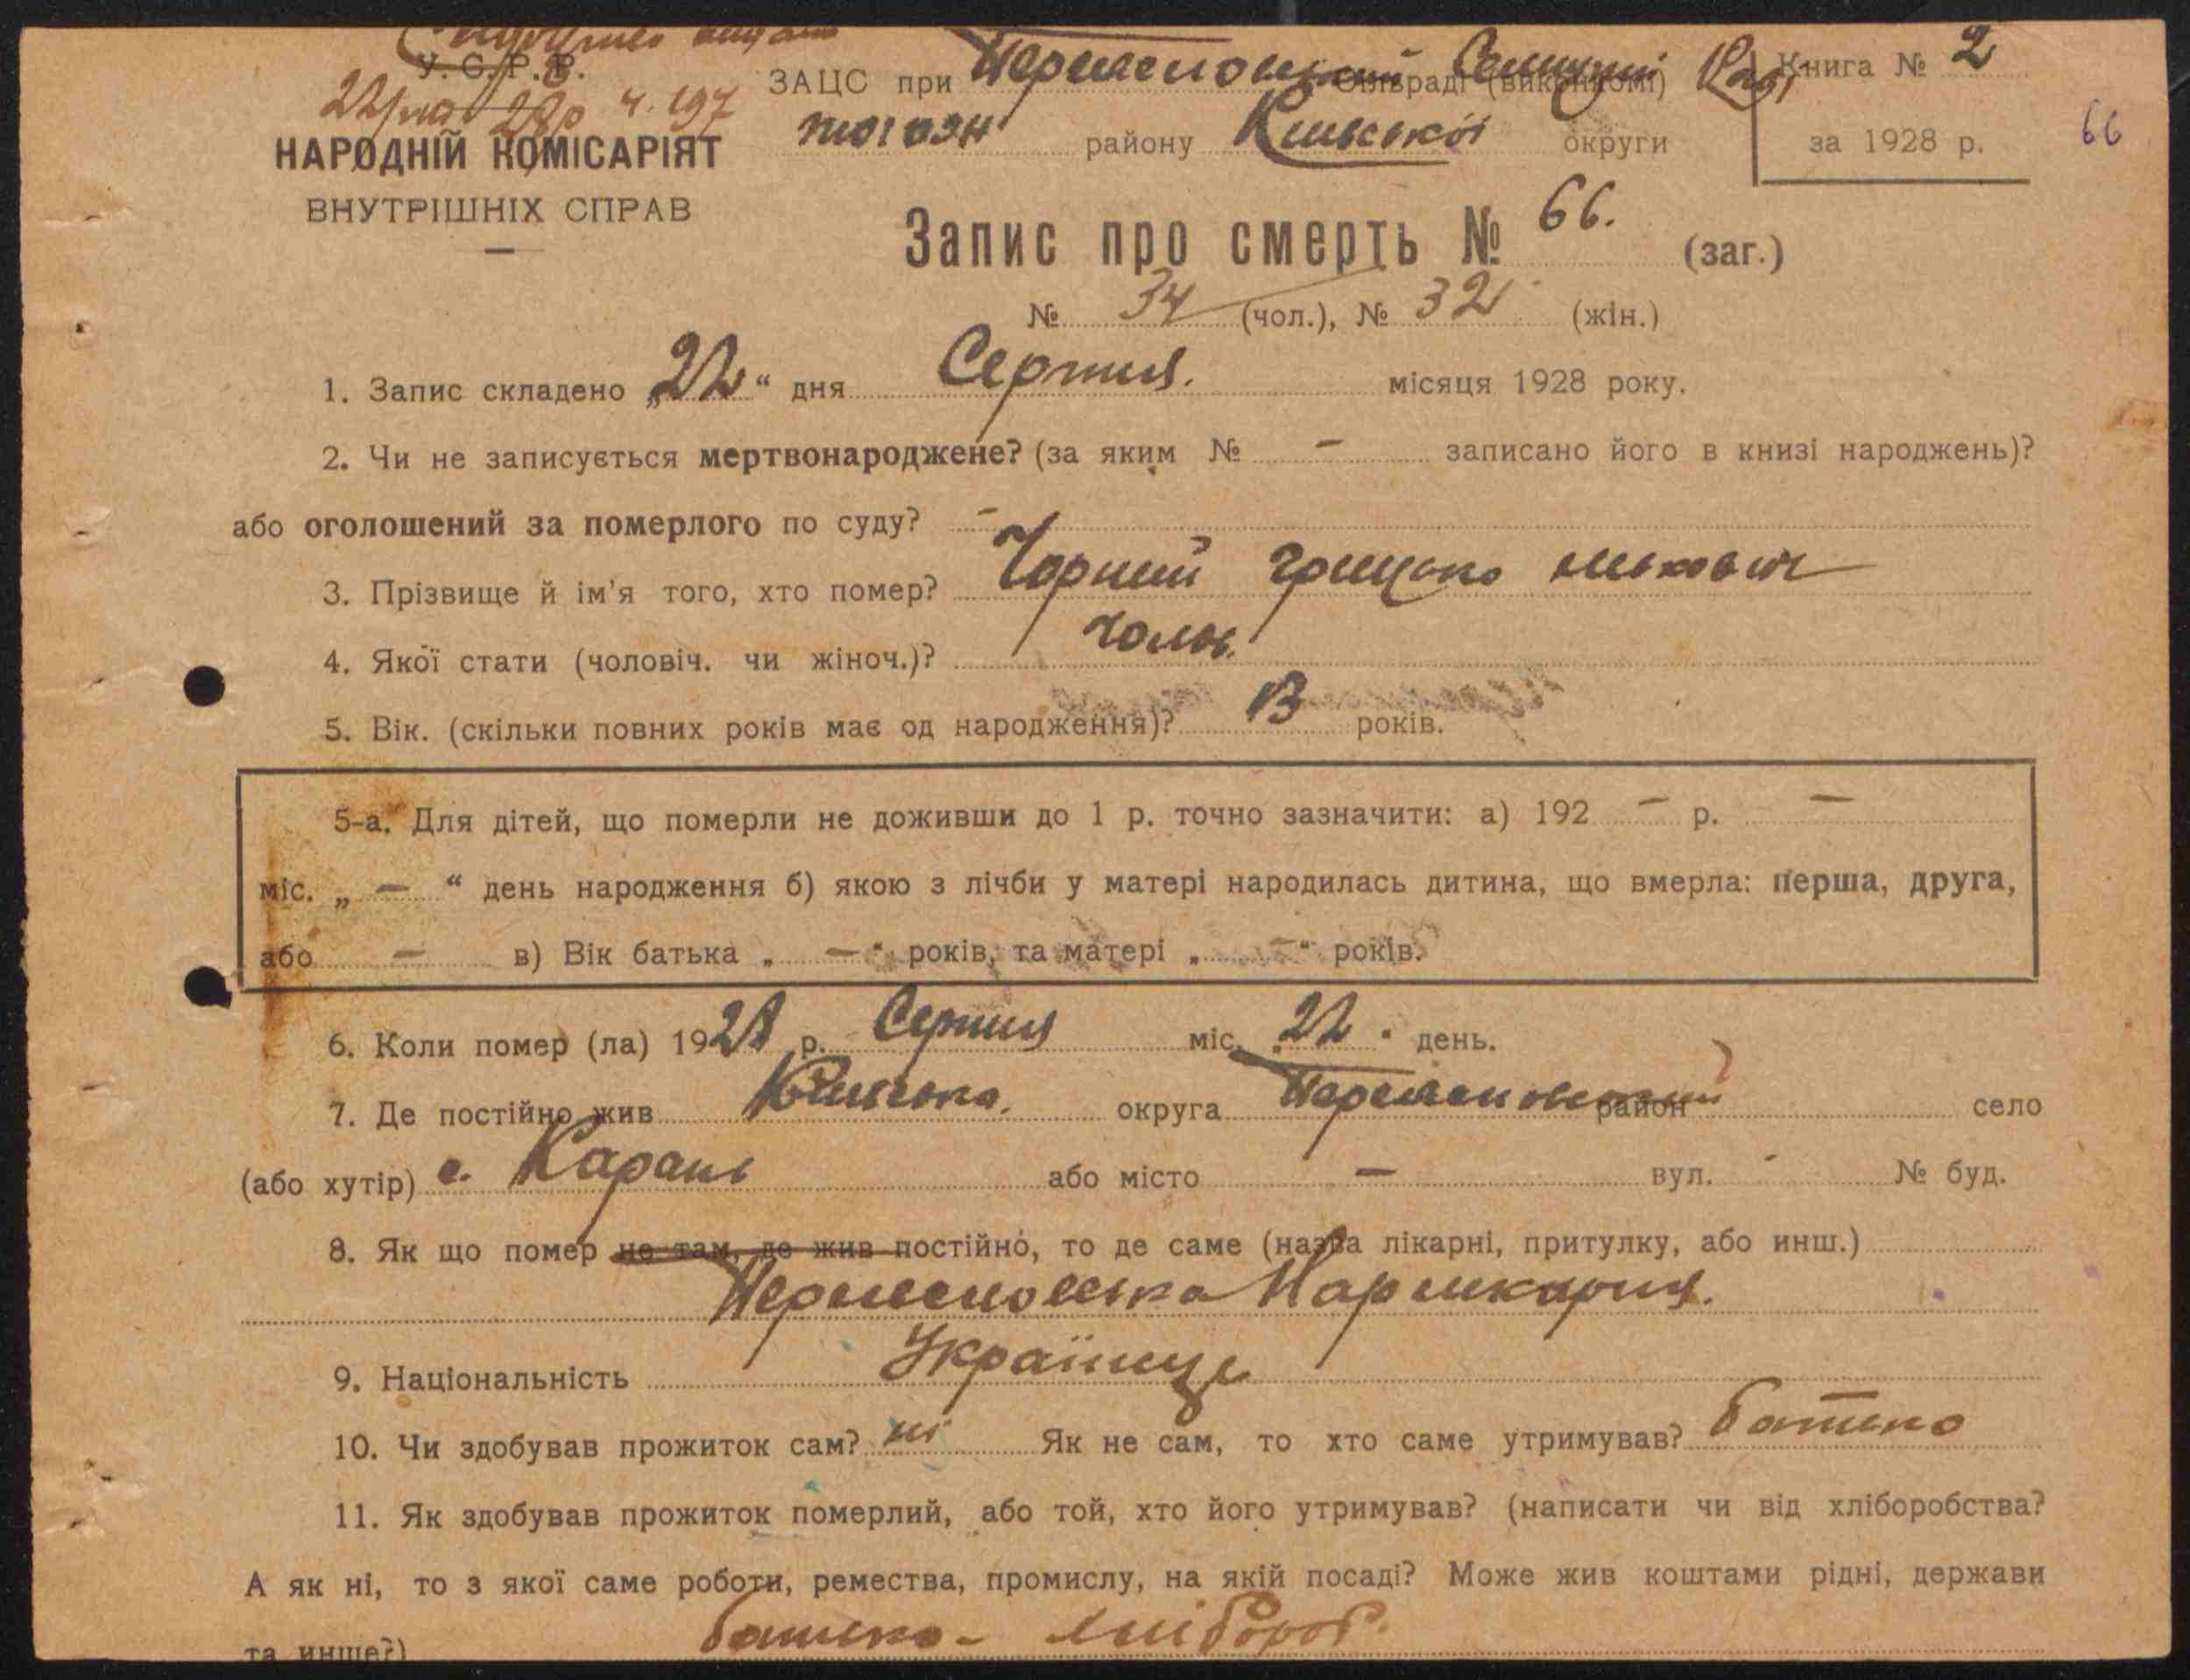 У. С. Р. Р.
22/VIII 28р ч. 197
ЗАЦС при Переяславській Сільраді (виконкомі) Раді
Книга № 2
того ж району Київської округи
за 1928 р.
66
НАРОДНІЙ КОМІСАРІЯТ
ВНУТРІШНІХ СПРАВ
Запис про смерть № 66. (заг.)
№ 34 (чол.), № 32 (жін.)
1. Запис складено „22“ дня Серпня. місяця 1928 року.
2. Чи не записується мертвонароджене? (за яким № – записано його в книзі народжень)?
або оголошений за померлого по суду? –
3. Прізвище й ім'я того, хто помер? Чорний Грицько
4. Якої стати (чоловіч. чи жіноч.)? Чолов.
5. Вік. (скільки повних років має од народження)? 13 років.
5-а. Для дітей, що померли не доживши до 1 р. точно зазначити: а) 192 – р. –
міс. „ – “ день народження б) якою з лічби у матері народилась дитина, що вмерла: перша, друга,
або – в) Вік батька „ – “ років, та матері „ – “ років.
6. Коли помер (ла) 1928 р. Серпня міс. „22“ день.
7. Де постійно жив Київська. округа Переяславський район село
(або хутір) с. Карань або місто – вул. - № буд.
8. Як що помер не там, де жив постійно, то де саме (назва лікарні, притулку, або инш.)
Переяславська Нарлікарня.
9. Національність Українець
10. Чи здобував прожиток сам? ні Як не сам, то хто саме утримував? батько
11. Як здобував прожиток померлий, або той, хто його утримував? (написати чи від хліборобства?
А як ні, то з якої саме роботи, ремества, промислу, на якій посаді? Може жив коштами рідні, держави
та инше?) батько - хлібороб.